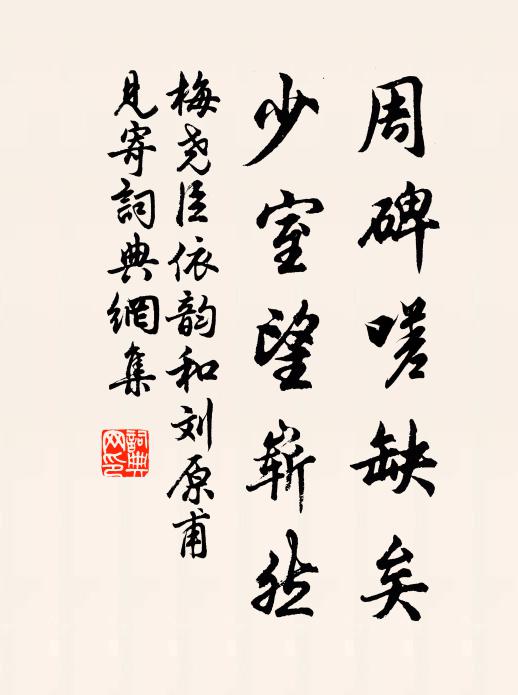 周碑嗟缺矣
少室望崭然
梅尧臣依韵和刘原甫
见寄詞典網集
詞典網印